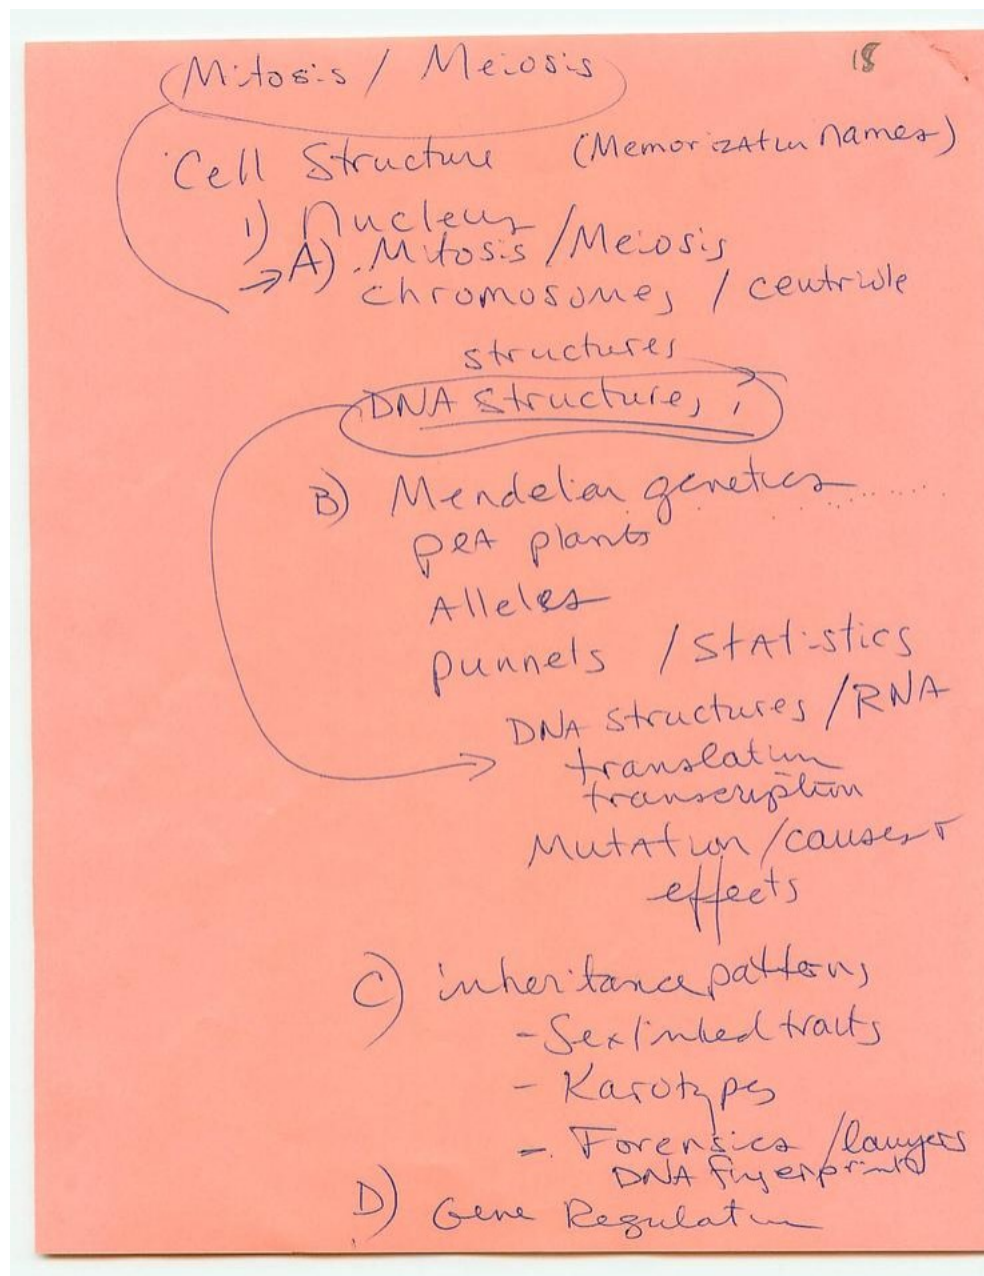 18
Mitosis / Meiosis
Cell Structure (Memorization names)
1) Nucleus
A) Mitosis / Meiosis
chromosomes / centriole
structures
DNA structures,
B) Mendelian genetics
peA plants
Alleles
punnets / StAtistics
DNA structures / RNA
translation
transcription
MutAtion / causes +
effects
C) inheritance patterns
- Sexlinked traits
- Karotypes
- Forensics / lawyers
DNA fingerprints
D) Gene Regulation